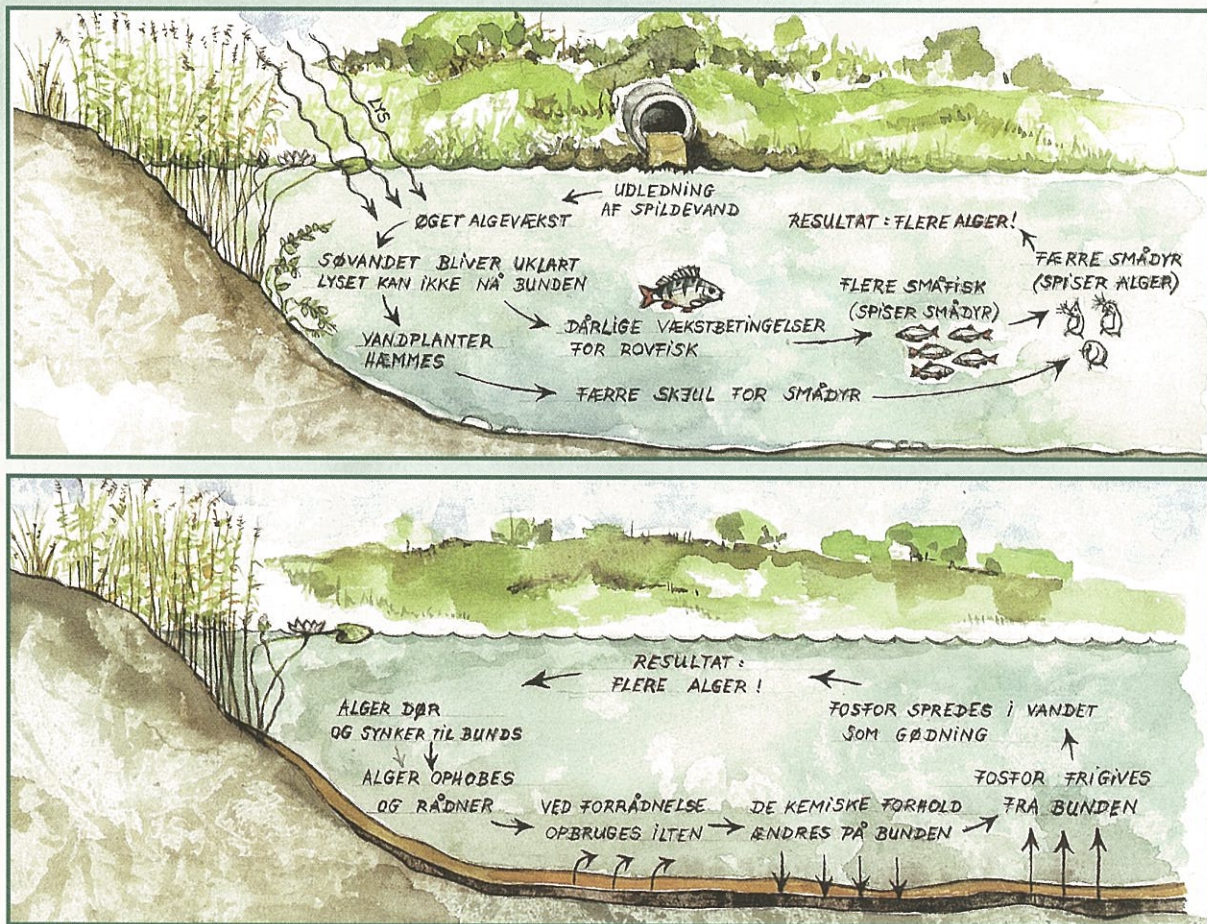 LYS
UDLEDNING
AF SPILDEVAND
ØGET ALGEVÆKST
SØVANDET BLIVER UKLART
LYSET KAN IKKE NÅ BUNDEN
VANDPLANTER
HÆMMES
DÅRLIGE VÆKSTBETINGELSER
FOR ROVFISK
FÆRRE SKJUL FOR SMÅDYR
FLERE SMÅFISK
(SPISER SMÅDYR)
FÆRRE SMÅDYR
(SPISER ALGER)
RESULTAT: FLERE ALGER!
RESULTAT:
FLERE ALGER!
ALGER DØR
OG SYNKER TIL BUNDS
ALGER OPHOBES
OG RÅDNER
VED FORRÅDNELSE
OPBRUGES ILTEN
DE KEMISKE FORHOLD
ÆNDRES PÅ BUNDEN
FOSFOR FRIGIVES
FRA BUNDEN
FOSFOR SPREDES I VANDET
SOM GØDNING